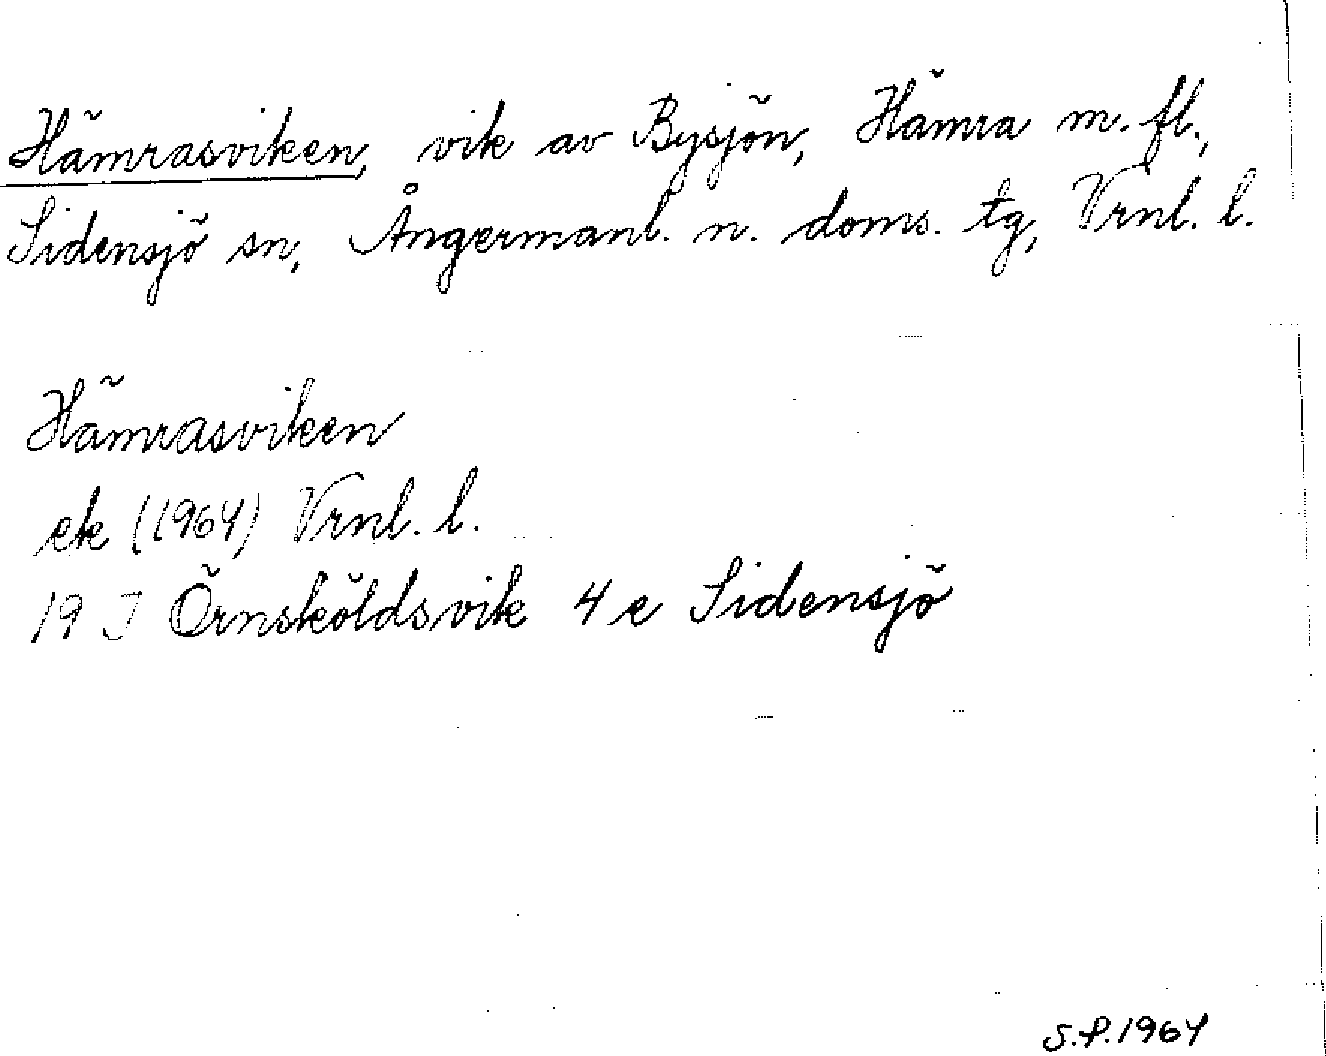 Hämrasviken, vik av Bysjön, Hämra m. fl.,
Sidensjö sn, Ångermanl. n. doms. tg, Vrnl. l.
Hämrasviken
ek (1964) Vrnl. l.
19 J Örnsköldsvik 4 e Sidensjö
S.P. 1964